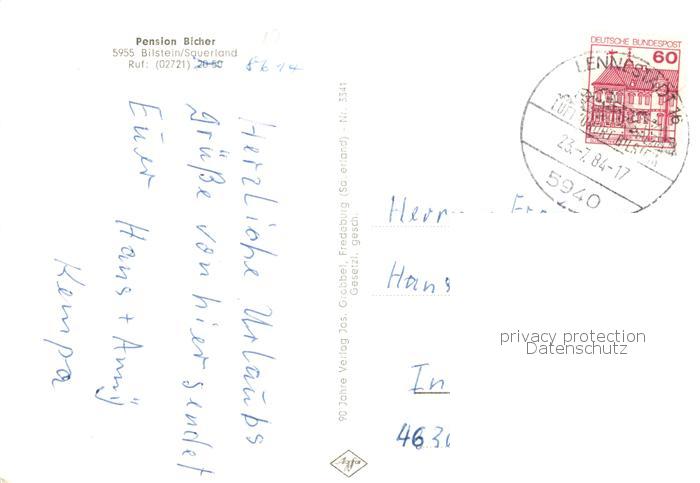 Pension Bicher
5955 Bilstein/Sauerland
Ruf: (02721) 20 50 8614
Herzliche Urlaubs
grüße von hier sendet
Euer Hans + Anny
Kempa
90 Jahre Verlag Jos. Grobbel, Fredeburg (Sauerland) - Nr. 3341
Gesetzl. gesch.
Agfa
DEUTSCHE BUNDESPOST
60
LENNESTADT 16
23.-7.84-17
5940
Herr
Hans
In
463
privacy protection
Datenschutz